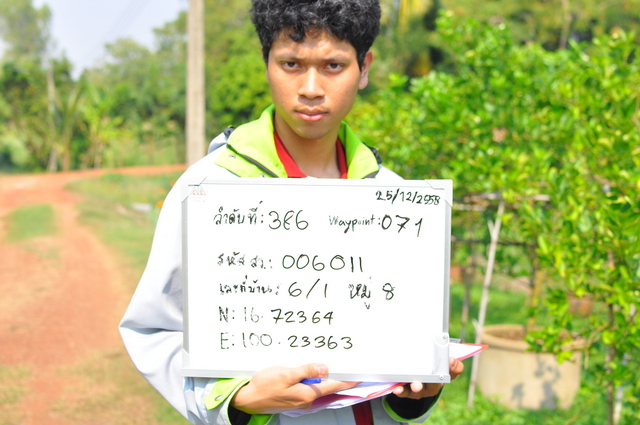 25/12/2558
ลำดับที่: 386 Waypoint: 071
รหัส สว.: 006011
เลขที่บ้าน: 6/1 หมู่ 8
N: 16.72364
E: 100.23363